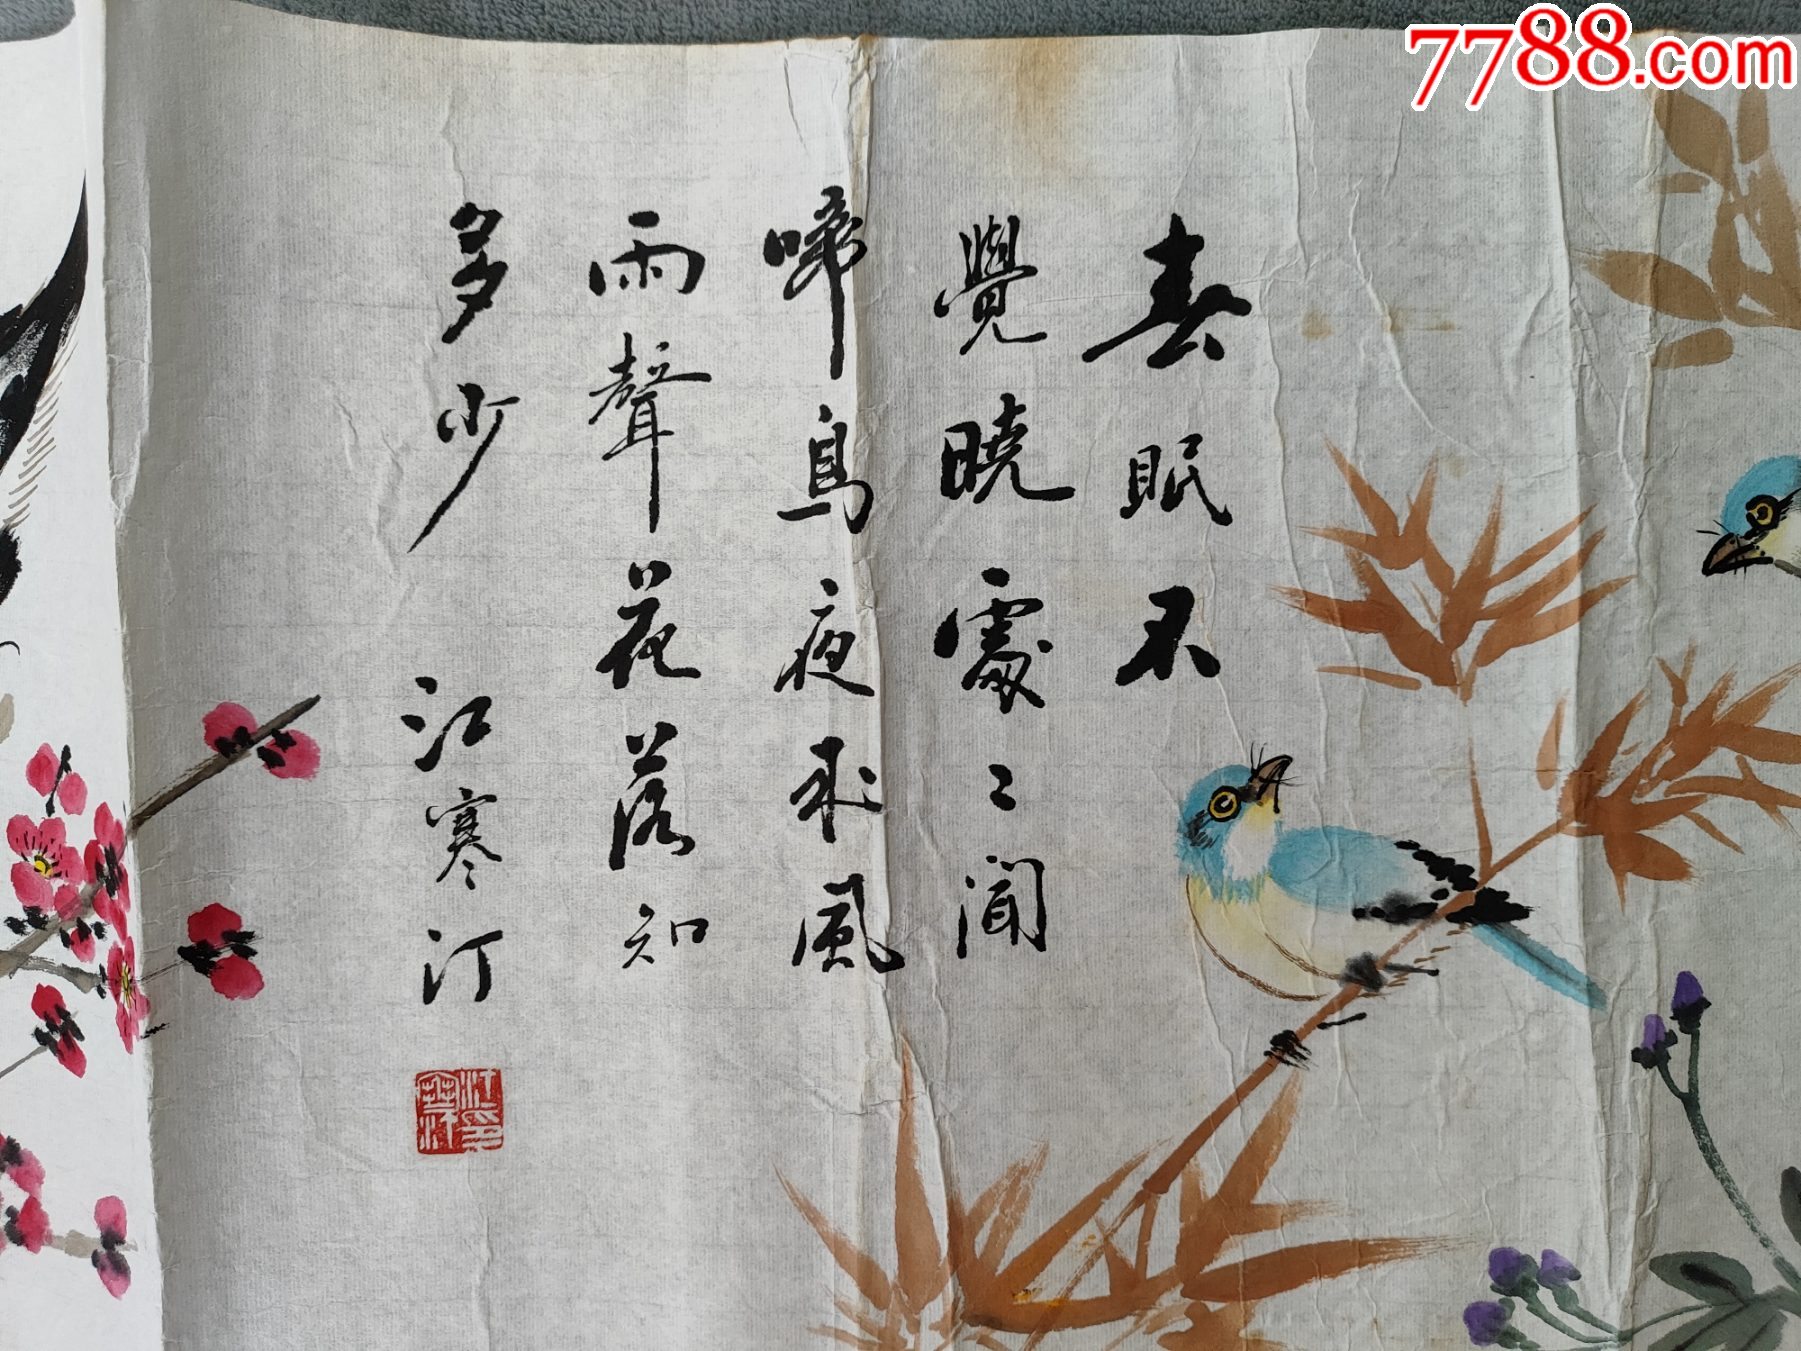 7788.com
春眠不
覺曉處〻聞
啼鳥夜來風
雨聲花落知
多少 江寒汀
江寒汀印